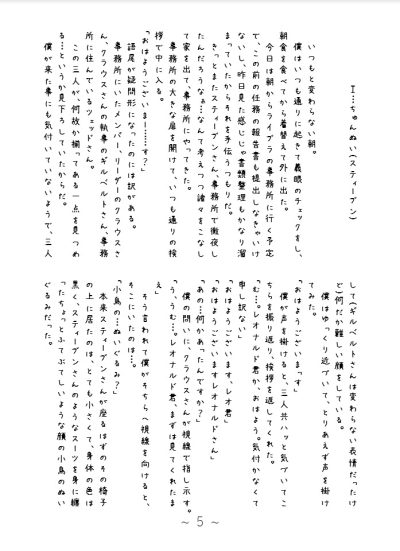 I…ちゅんぬい(スティーブン)
いつもと変わらない朝。
僕はいつも通りに起きて義眼のチェックをし、
朝食を食べてから着替えて外に出た。
今日は朝からライブラの事務所に行く予定
で、この前の任務の報告書も提出しなきゃいけ
ないし、昨日見た感じじゃ書類整理もかなり溜
まっていたからそれを手伝うつもりだ。
きっとまたスティーブンさん、事務所で徹夜し
たんだろうなぁ…なんて考えつつ諸々をこなし
て家を出て、事務所にやってきた。
事務所の大きな扉を開けて、いつも通りの挨
拶で中に入る。
「おはようございまー……す?」
語尾が疑問形になったのには訳がある。
事務所にいたメンバー、リーダーのクラウスさ
ん、クラウスさんの執事のギルベルトさん、事務
所に住んでいるツェッドさん。
この三人が、何故か揃ってある一点を見つめ
る…というか見下ろしていたからだ。
僕が来た事にも気付いていないようで、三人
して(ギルベルトさんは変わらない表情だったけ
ど)何だか難しい顔をしている。
僕はゆっくり近づいて、とりあえず声を掛け
てみた。
「おはようございまっす」
僕が声を掛けると、三人共ハッと気づいてこ
ちらを振り返り、挨拶を返してくれた。
「む…。レオナルド君か、おはよう。気付かなくて
申し訳ない」
「おはようございます、レオ君」
「おはようございますレオナルドさん」
「あの…何かあったんですか?」
僕の問いに、クラウスさんが視線で指し示す。
「う、うむ…。レオナルド君、まずは見てくれたま
え」
そう言われて僕がそちらへ視線を向けると、
そこにいたのは…。
「小鳥の…ぬいぐるみ?」
本来スティーブンさんが座るはずのその椅子
の上に居たのは、とても小さくて、身体の色は
黒く、スティーブンさんのようなスーツを身に纏
ったちょっとふてぶてしいような顔の小鳥のぬい
ぐるみだった。
~ 5 ~